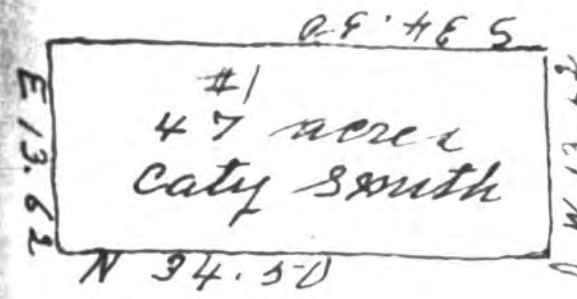 S 34.50
#1
47 acres
Caty Smith
E 13.62
N 34.50